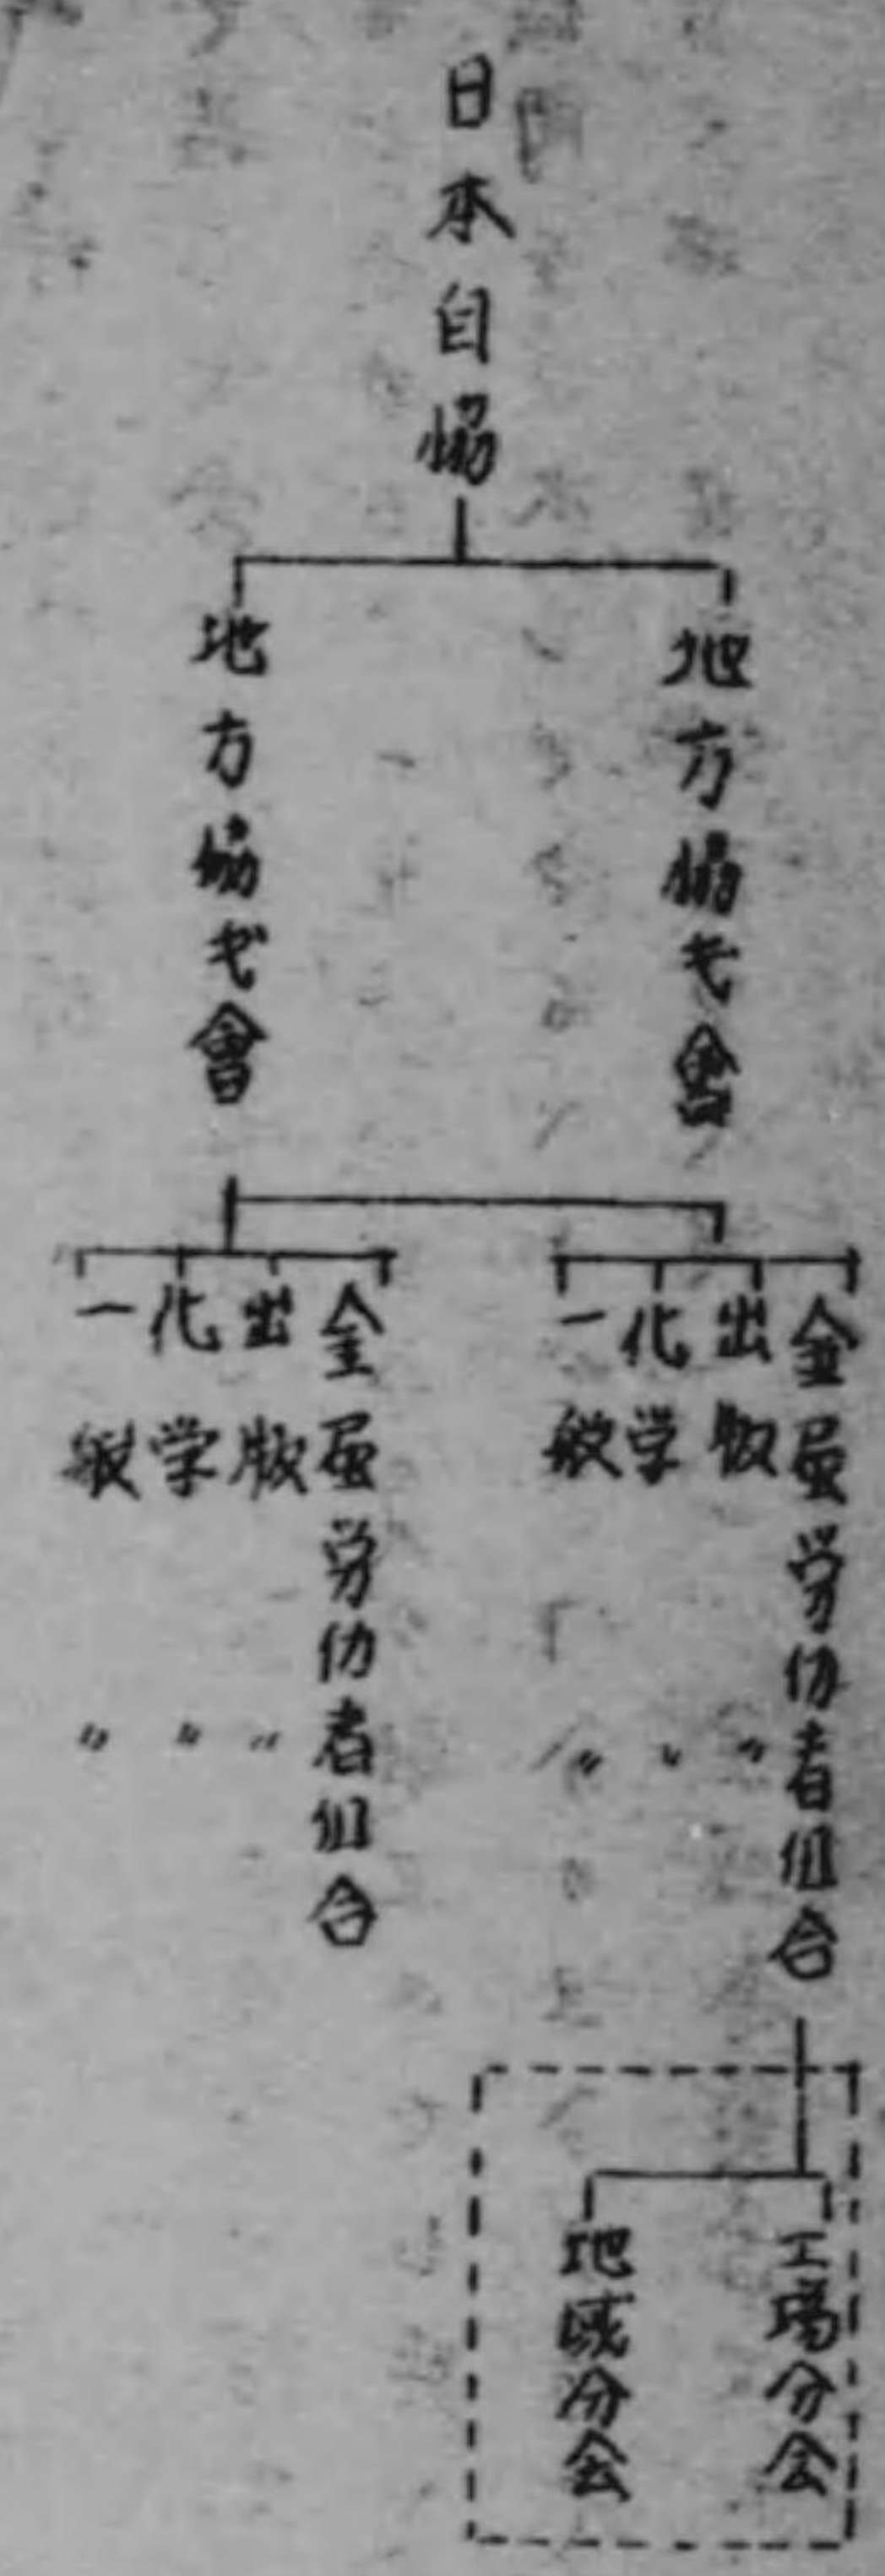 日本自協
地方協弋會
地方協弋會
金属労仂者組合
出版〃
化学〃
一般〃
金属労仂者組合
出版〃
化学〃
一般〃
工場分会
地域分会